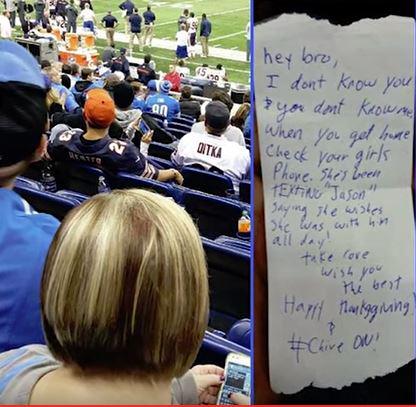 HESTER
23
90
DITKA
hey bro,
I dont know you
& you dont know me
when you get home
check your girls
Phone. She's been
TEXTING "Jason"
saying she wishes
she was with him
all day!
take care
wish you
the best
Happy thanksgiving!
&
#Chive ON!